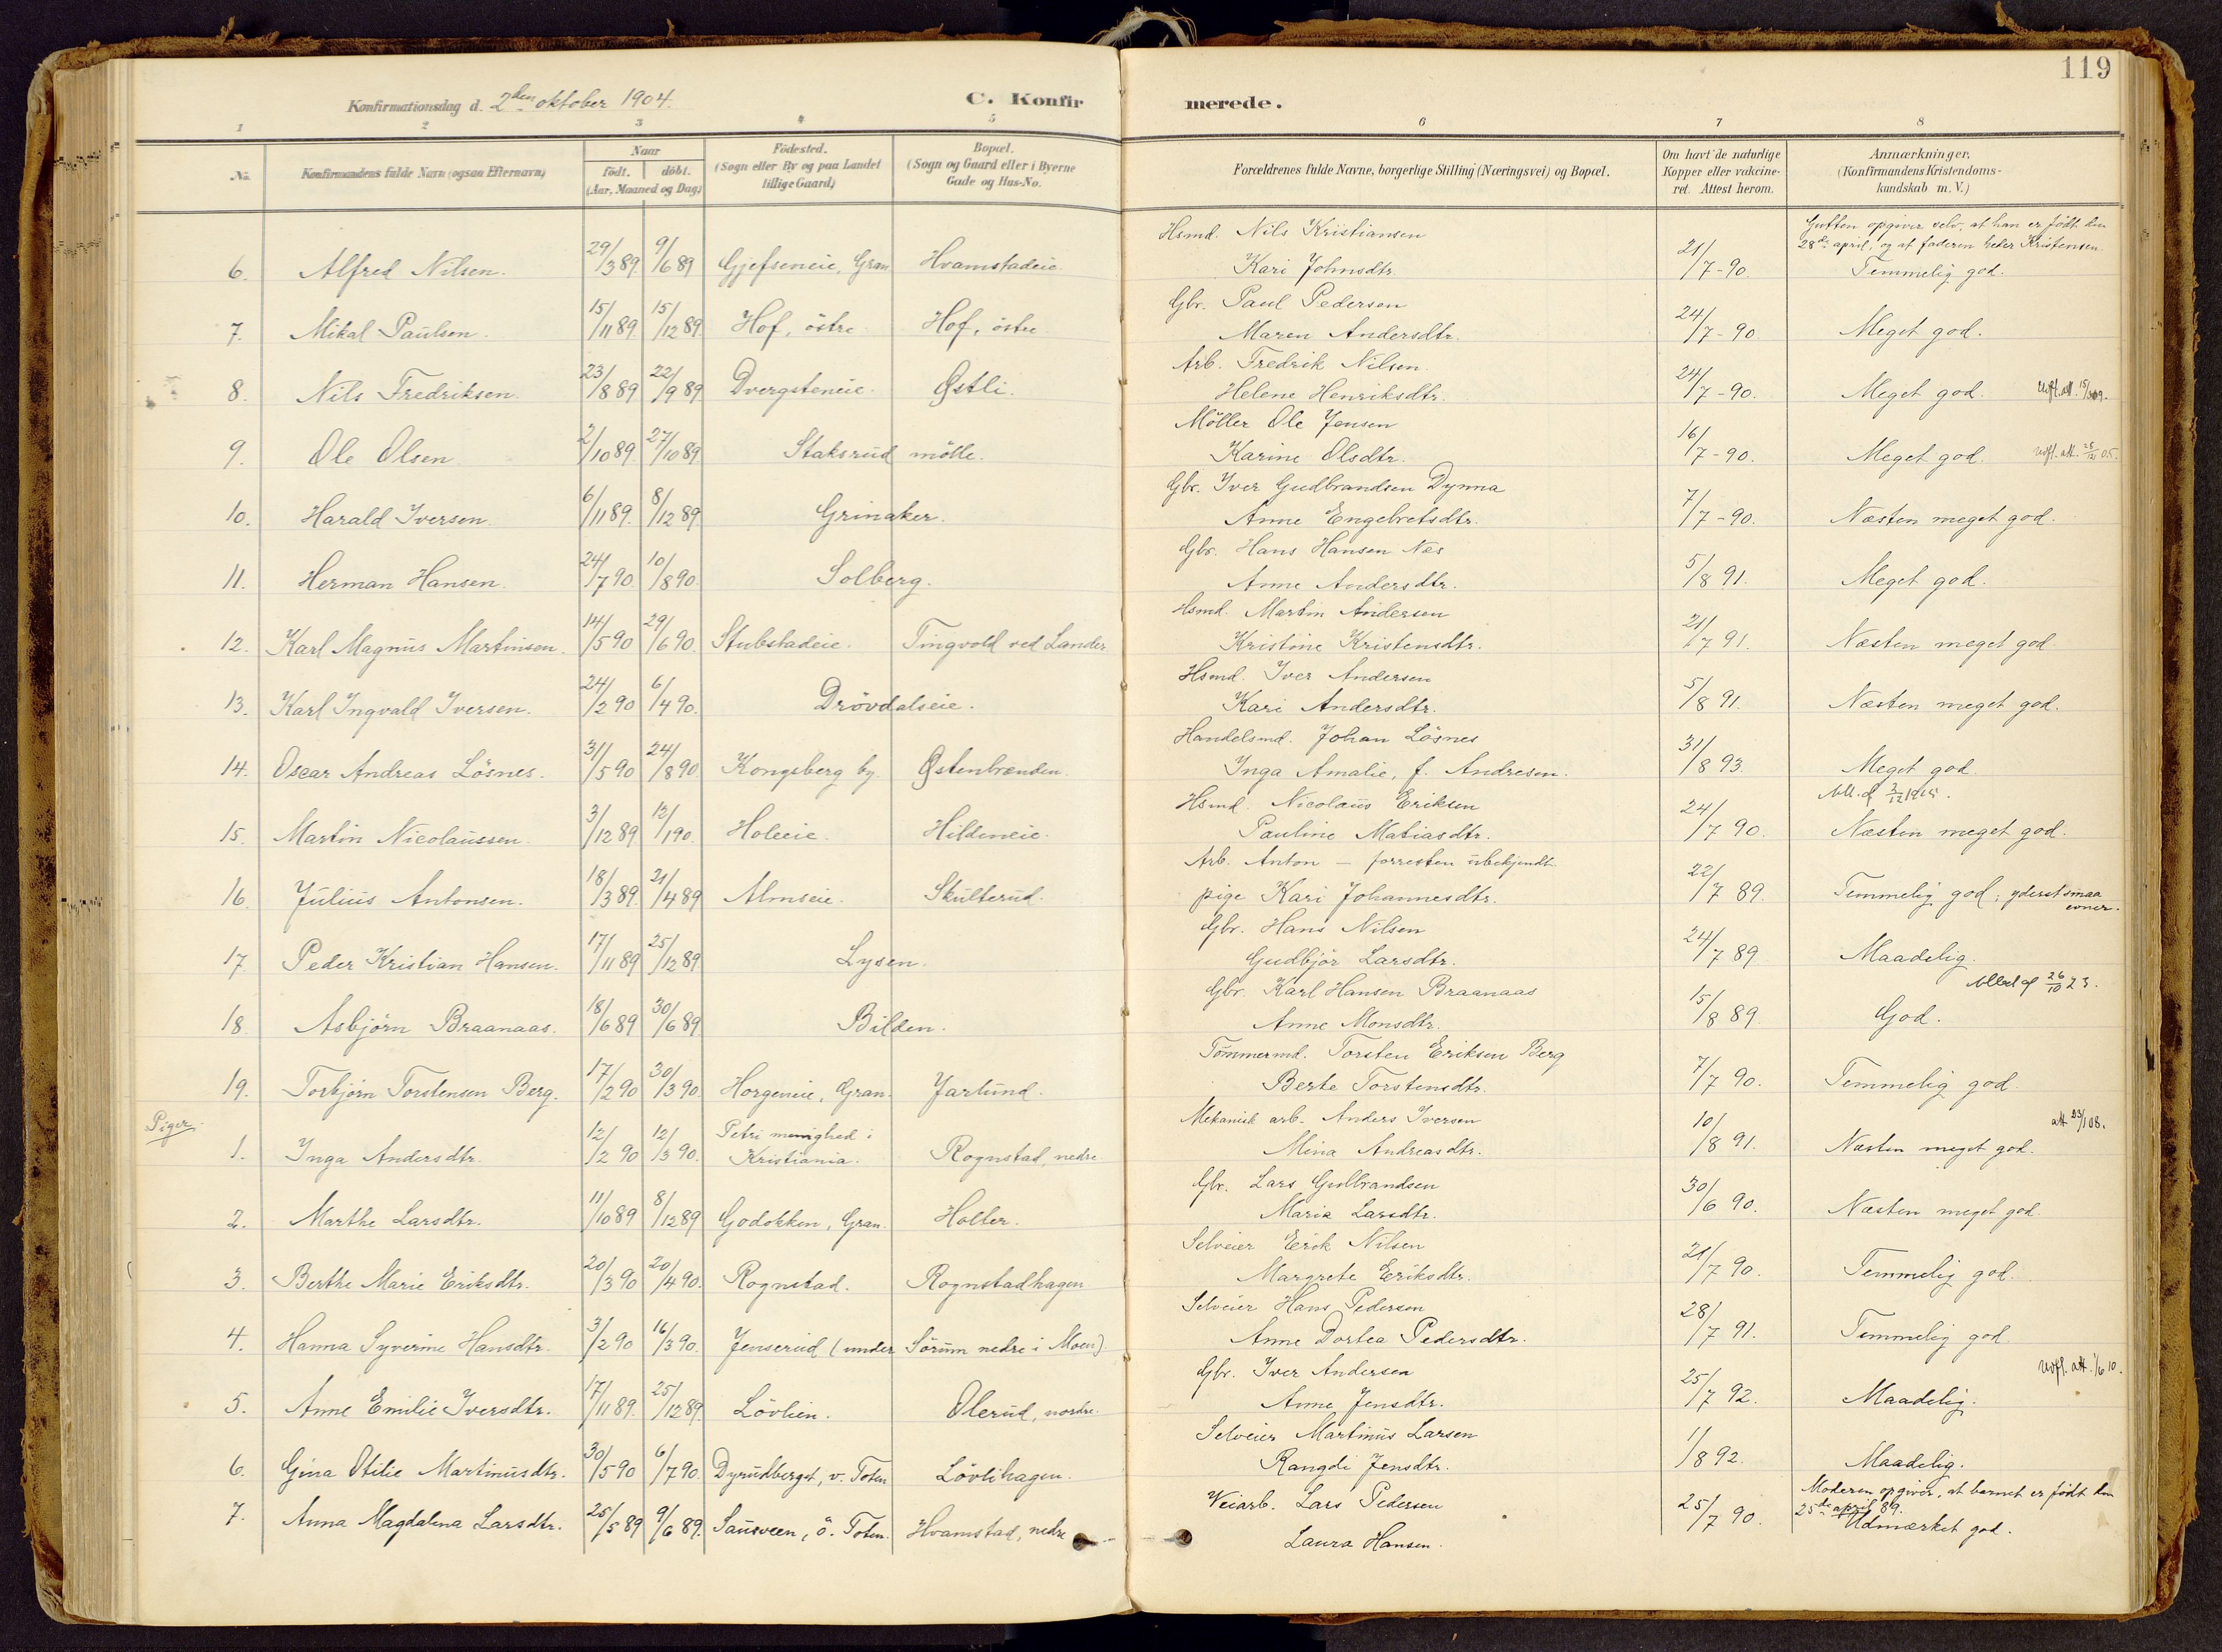 119
Konfirmationsdag d. 2den oktober 1904.
C. Konfirmerede.
1 2 3 4 5 6 7 8
No. | Konfirmandens fulde Navn (ogsaa Efternavn) | Naar født. døbt. (Aar, Maaned og Dag) | Fødested. (Sogn eller By og paa Landet tillige Gaard) | Bopæl. (Sogn og Gaard eller i Byerne Gade og Hus-No. | Forældrenes fulde Navne, borgerlige Stilling (Næringsvei) og Bopæl. | Om havt de naturlige Kopper eller vakcineret. Attest herom. | Anmærkninger. (Konfirmandens Kristendomskundskab m. V.)
6. Alfred Nilsen. 29/3 89. 9/6 89 Gjefseneie, Gran Hvamstadeie. Hsmd. Nils Kristiansen Kari Johnsdtr. 21/7-90. Gutten opgiver selv, at han er født den 28de april, og at faderen heder Kristensen. Temmelig god.
7. Mikal Paulsen. 15/11 89. 15/12 89 Hof, östre Hof, östre Gbr. Paul Pedersen Maren Andersdtr. 24/7-90 Meget god.
8. Nils Fredriksen. 23/8 89 22/9 89 Dvergsteneie. Østli. Arb. Fredrik Nilsen. Helene Henriksdtr. 24/7-90. Meget god. Udft. att. 15/3 09.
9. Ole Olsen. 2/10 89. 27/10 89 Staksrud mölle. Möller Ole Jensen Karine Olsdtr. 16/7-90. Meget god. Udft. att. 28/12 05.
10. Harald Iversen. 6/11 89. 8/12 89 Grinaker. Gbr. Iver Gudbrandsen Dynna Anne Engebretsdtr. 7/7-90. Næsten meget god.
11. Herman Hansen. 24/7 90 10/8 90. Solberg. Gbr. Hans Hansen Næs Anne Andersdtr. 5/8 91. Meget god.
12. Karl Magnus Martinsen. 14/5 90 29/6 90. Stubstadeie. Tingvold ved Lander Hsmd. Martin Andersen Kristine Kristensdtr. 21/7 91. Næsten meget god
13. Karl Ingvald Iversen. 24/2 90 6/4 90. Drövdalseie. Hsmd. Iver Andersen Kari Andersdtr. 5/8 91. Næsten meget god.
14. Oscar Andreas Lösnes. 31/5 90 24/8 90 Kongsberg by. Østenbrænden. Handelsmd. Johan Lösnes Inga Amalie, f. Andresen. 31/8 93. Meget god.
15. Martin Nicolaussen. 3/12 89 12/1 90. Holeie. Hildeneie. Hsmd. Nicolaus Eriksen Pauline Matiasdtr. 24/7 90. Næsten meget god.
16. Julius Antonsen. 18/3 89. 21/4 89 Almseie. Skulterud. Arb. Anton — forresten ubekjendt. pige Kari Johannesdtr. 22/7 89. Temmelig god; yderst smaa evner.
17. Peder Kristian Hansen. 17/11 89 25/12 89 Lysen. Gbr. Hans Nilsen Gudbjör Larsdtr. 24/7 89 Maadelig.
18. Asbjörn Braanaas. 18/6 89 30/6 89 Bilden. Gbr. Karl Hansen Braanaas Anne Monsdtr. 15/8 89 26/10 23. God.
19. Torbjörn Torstensen Berg. 17/2 90 30/3 90. Horgeneie, Gran. Jarlund. Tömmermd. Torsten Eriksen Berg Berte Torstensdtr. 7/7 90. Temmelig god.
Piger.
1. Inga Andersdtr. 12/2 90 12/3 90. Petri menighed i Kristiania. Rognstad, nedre Mekanisk arb. Anders Iversen Mina Andreasdtr. 10/8 91. Næsten meget god. att 23/1 08.
2. Marthe Larsdtr. 11/10 89 8/12 89 Godokken, Gran. Holter. Gbr. Lars Gulbrandsen Maria Larsdtr. 30/6 90. Næsten meget god.
3. Berthe Marie Eriksdtr. 20/3 90 20/4 90. Rognstad. Rognstadhagen Selveier Erik Nilsen Margrete Eriksdtr. 21/7 90. Temmelig god.
4. Hanna Syverine Hansdtr. 3/2 90 16/3 90. Jenserud (under Sörum nedre i Moen). Selveier Hans Pedersen Anne Dortea Pedersdtr. 28/7 91. Temmelig god.
5. Anne Emilie Iversdtr. 17/11 89. 25/12 89. Lövlien. Olerud, nordre. Gbr. Iver Andersen Anne Jensdtr. 25/7 92. Maadelig. Udft. att. 1/6 10.
6. Gina Otilie Martinusdtr. 30/5 90 6/7 90. Dyrudberget, v. Toten Lövlihagen. Selveier Martinus Larsen Rangdi Jensdtr. 1/8 92. Maadelig.
7. Anna Magdalena Larsdtr. 25/5 89 9/6 89. Sausveen, ö. Toten. Hvamstad, nedre Veiarb. Lars Pedersen Laura Hansen. 25/7 90. Moderen opgiver, at barnet er født den 25de april 89. Udmærket god.